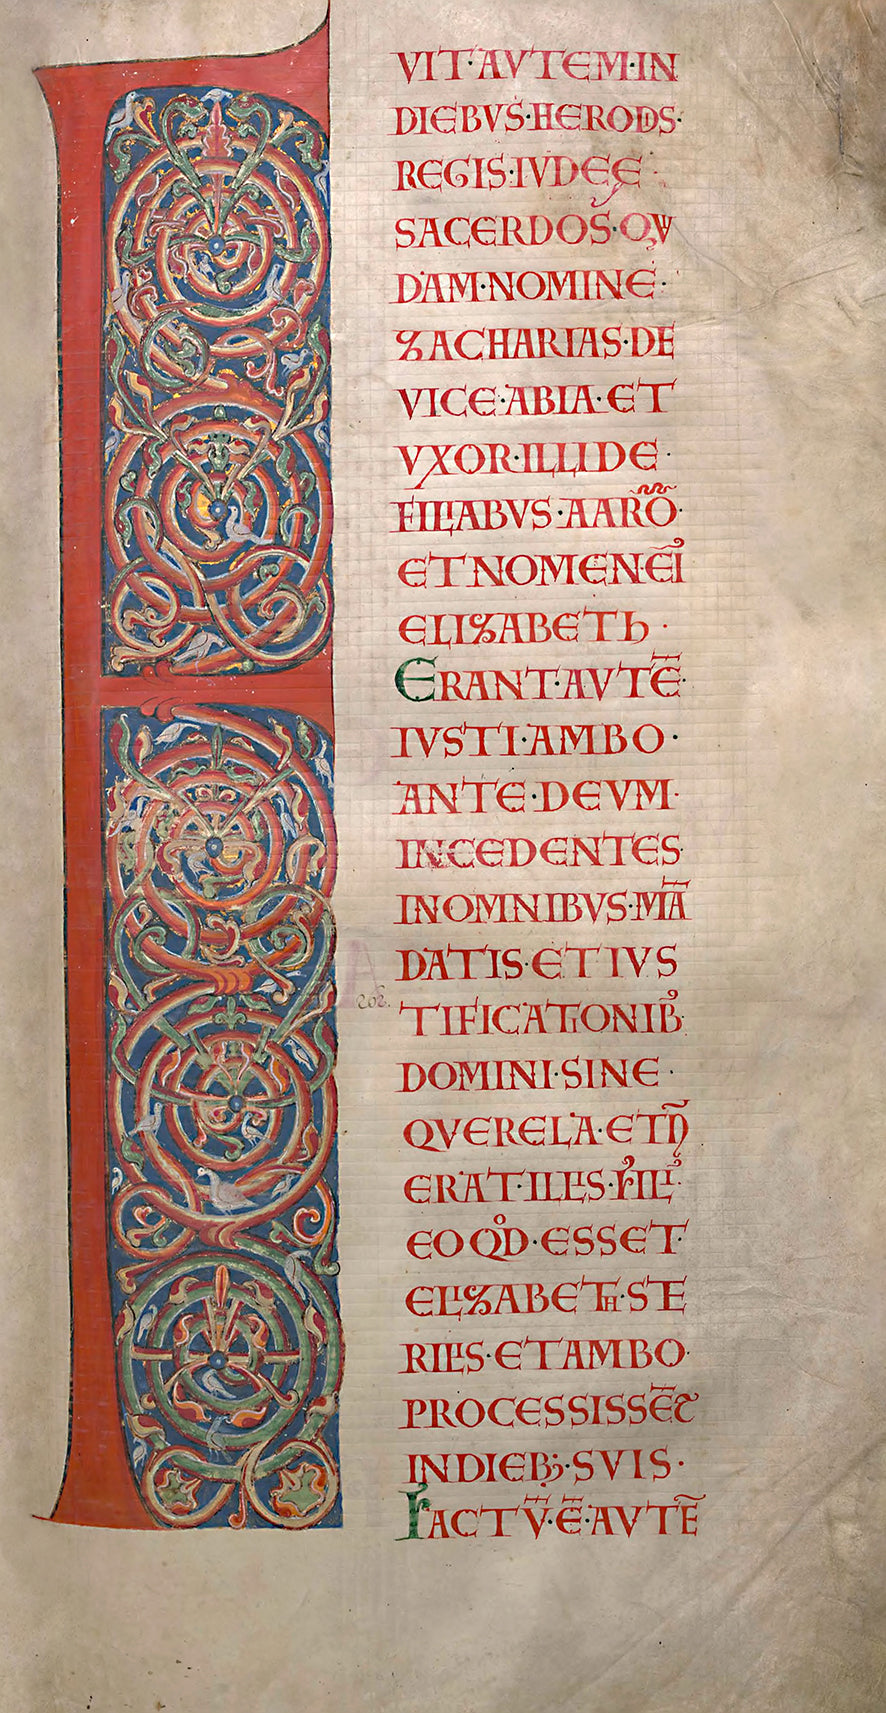 F
VIT·AVTEM·IN
DIEBVS·HERODIS·
REGIS·IVDEĘ
SACERDOS·QVI
DAM·NOMINE·
ZACHARIAS·DE
VICE·ABIA·ET
VXOR·ILLI DE·
FILIABVS·AARŌ·
ET NOMEN·EI᾽
ELIZABETh·
ERANT·AVTĒ·
IVSTI·AMBO·
ANTE·DEVM·
INCEDENTES·
IN OMNIBVS·MĀ
DATIS·ET IVS
TIFICATIONIB᾽
DOMINI·SINE·
QVERELA·ET Ñ
ERAT·ILLIS·FILI᾽·
EO QͦD·ESSET·
ELIZABETH·STE
RILIS·ET AMBO·
PROCESSISSĒT
IN DIEB;·SVIS·
FACTV̄·Ē·AVTĒ